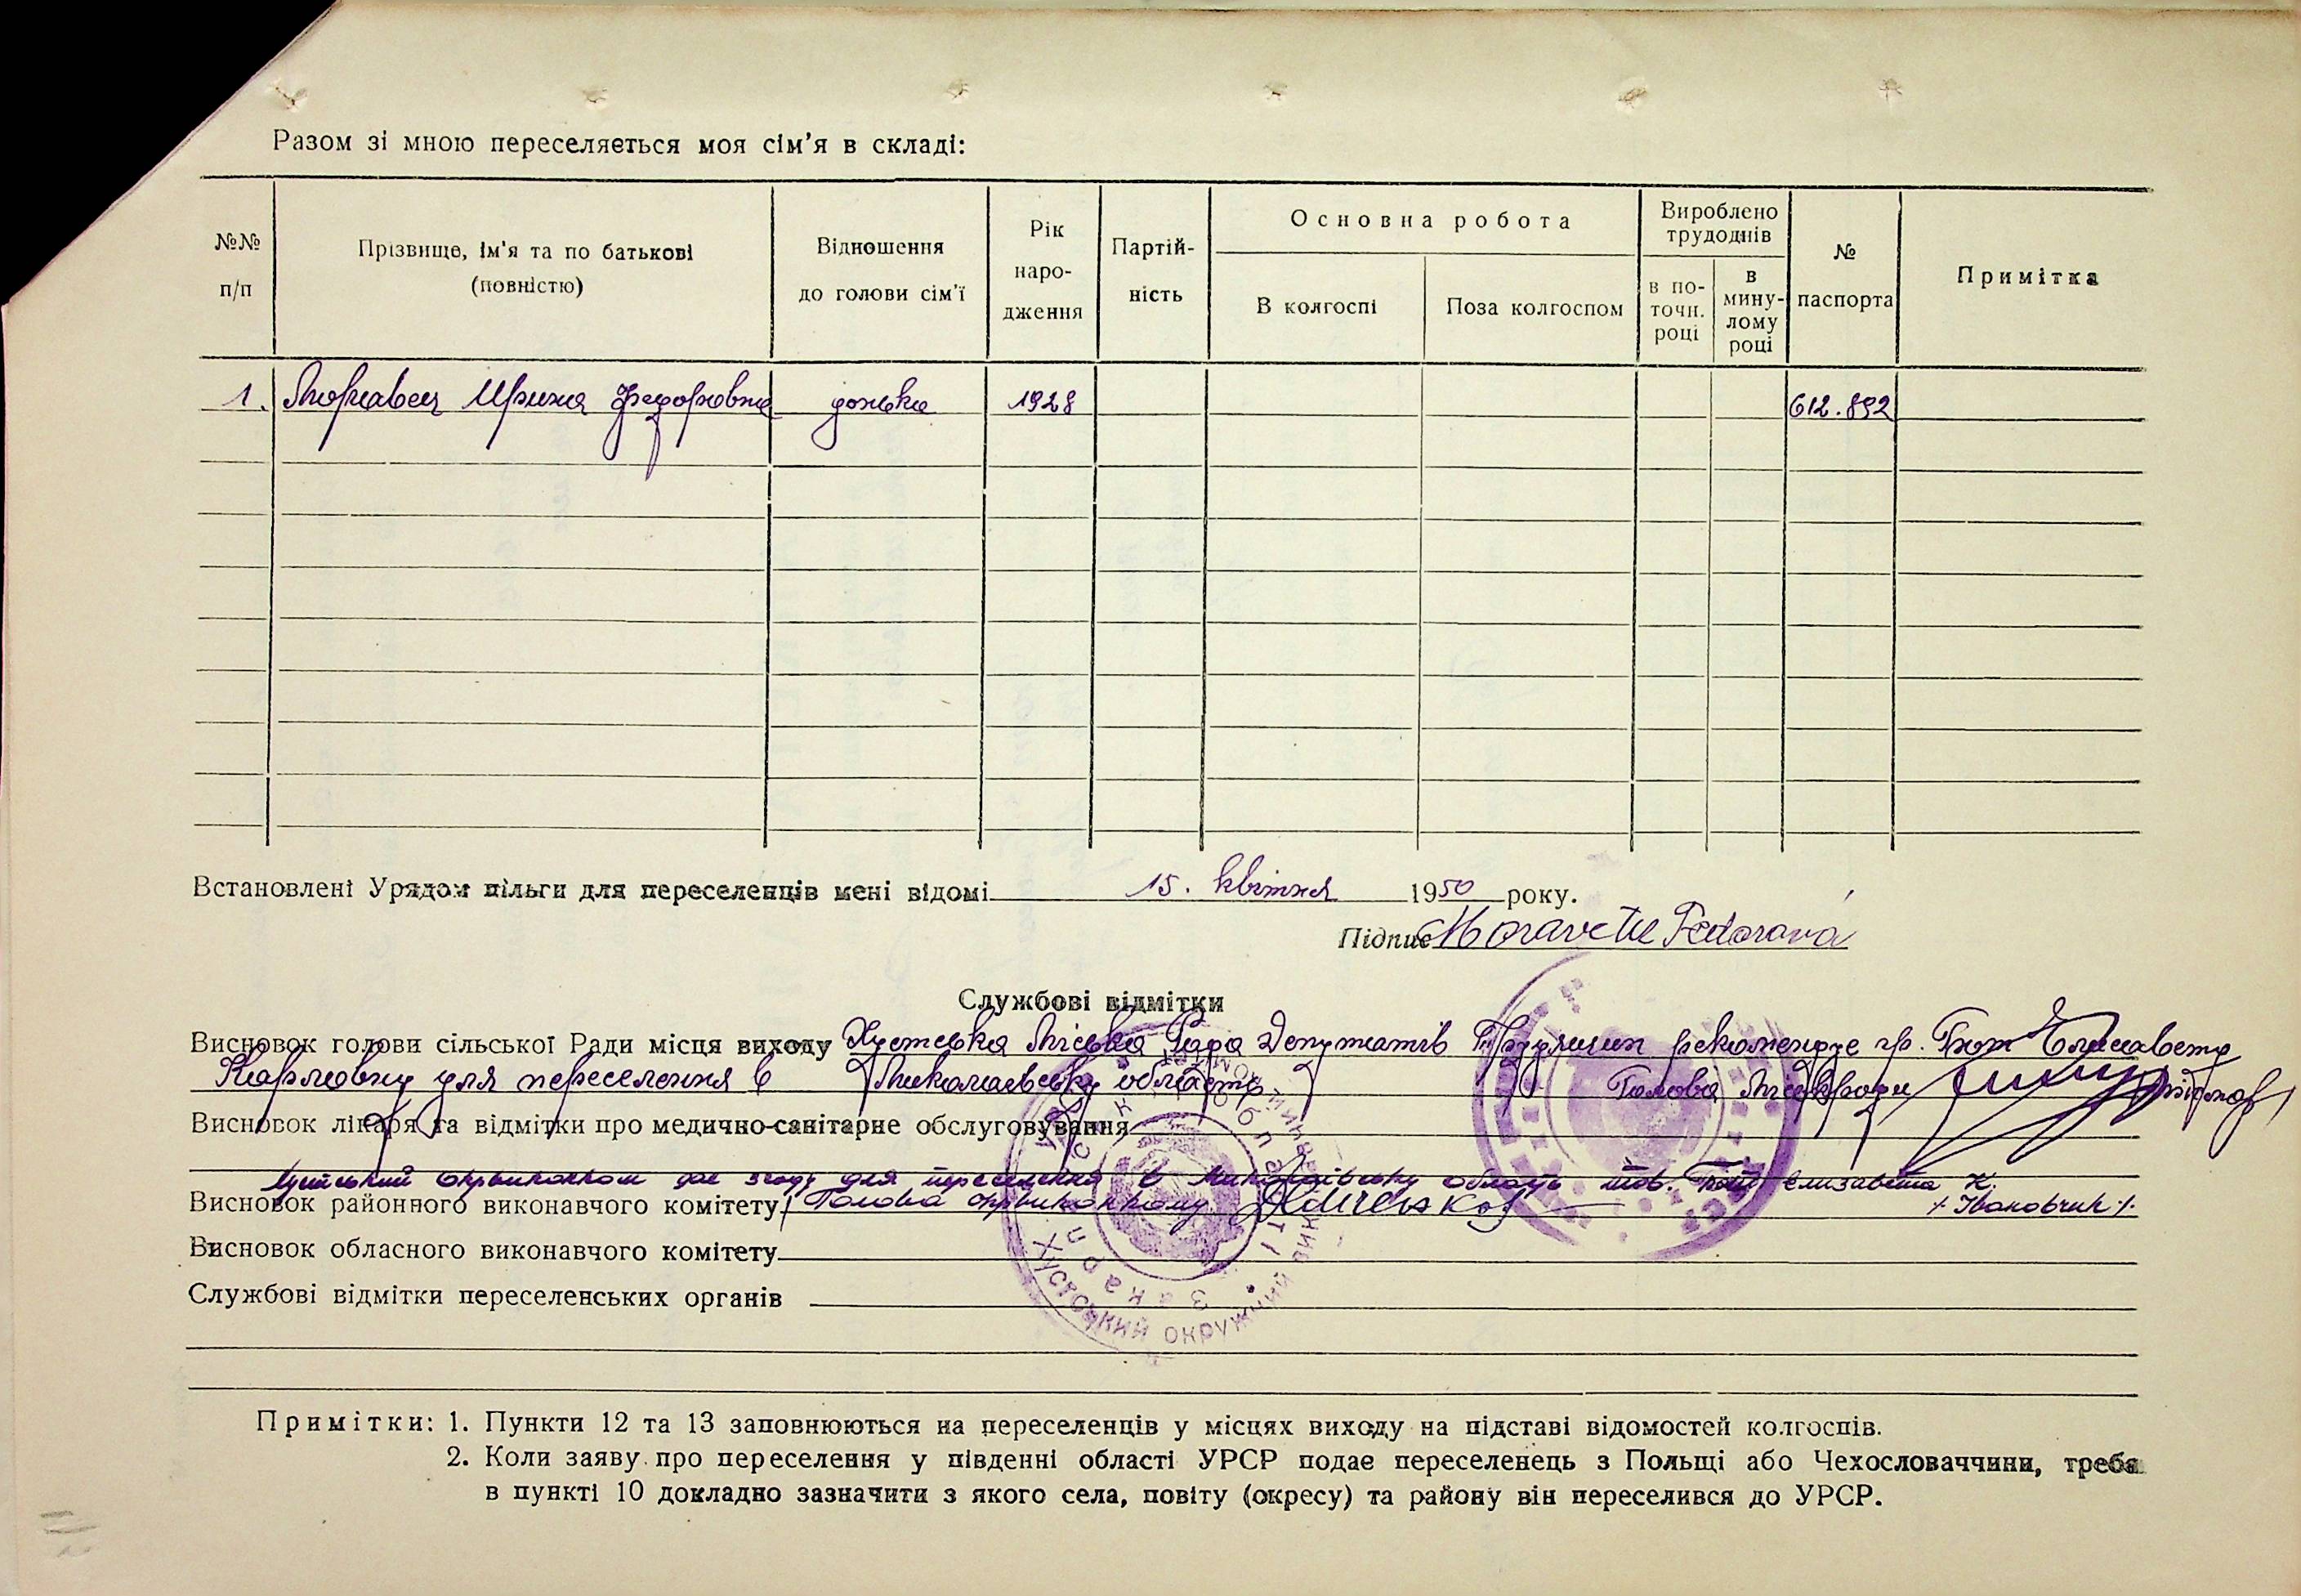 Разом зі мною переселяється моя сім'я в складі:
№№ п/п
Прізвище, ім'я та по батькові (повністю)
Відношення до голови сім'ї
Рік наро- дження
Партій- ність
Основна робота
В колгоспі
Поза колгоспом
Вироблено трудоднів
в по- точн. році
в мину- лому році
№ паспорта
Примітка
1. Моравец Ирина Федоровна донька 1928 612.892
Встановлені Урядом пільги для переселенців мені відомі 15. квітня 1950 року.
Підпис Fedorová
Службові відмітки
Висновок голови сільської Ради місця виходу Хустська Міська Рада Депутатів Трудящих рекомендує гр. Елисавету
Карловну для переселення в Миколаївську область Голова Міськради
Висновок лікаря та відмітки про медично-санітарне обслуговування
Хустський окрвиконком дає згоду для переселення в Миколаївську область тов. Елизавета К.
Висновок районного виконавчого комітету Голова окрвиконкому /Іванович/.
Висновок обласного виконавчого комітету
Службові відмітки переселенських органів
Хустський окружний
Примітки: 1. Пункти 12 та 13 заповнюються на переселенців у місцях виходу на підставі відомостей колгоспів.
2. Коли заяву про переселення у південні області УРСР подає переселенець з Польщі або Чехословаччини, треба
в пункті 10 докладно зазначити з якого села, повіту (окресу) та району він переселився до УРСР.